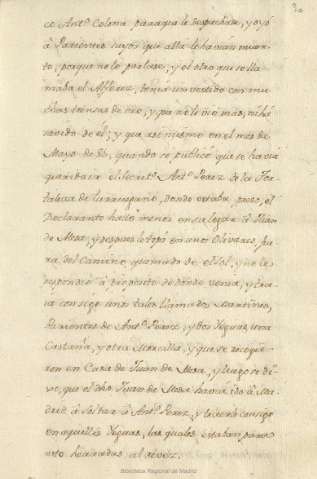 ce Ant.º Colona paraque le despachase, y oyó
à Pariente suyos que alla le havian muer-
to, porque no lo pudiese; y el otro que se lla-
maba el Alferez, traya un vestido con mu-
chas trensas de oro, y que no le vio mas, ni há
savido de él; y que assi mismo en el mes de
Mayo de 86, quando se publicó que se havia
querido ir el Secret.º Ant.º Perez de la For-
taleza de Turruegano, donde estaba preso, el
Declarante halló menos en su lugar à Juan
de Mesa, y despues le topó en unos Olivares fue-
ra del Camino quemado de el Sol, y no le
respondió à proposito de donde venia, y tra-
ia consigo unos tales llamados Martinez,
Parientes de Ant.º Perez, y dos Yeguas, una
Castaña, y otra Morcilla, y que se recogie-
ron en Casa de Juan de Mesa, y luego se di-
xo, que el dho Juan de Mesa havia ido à Ma-
drid à soltar à Ant.º Perez, y traerlo consigo
en aquellas Yeguas, las quales estaban para
esto herradas al revés.
Biblioteca Regional de Madrid